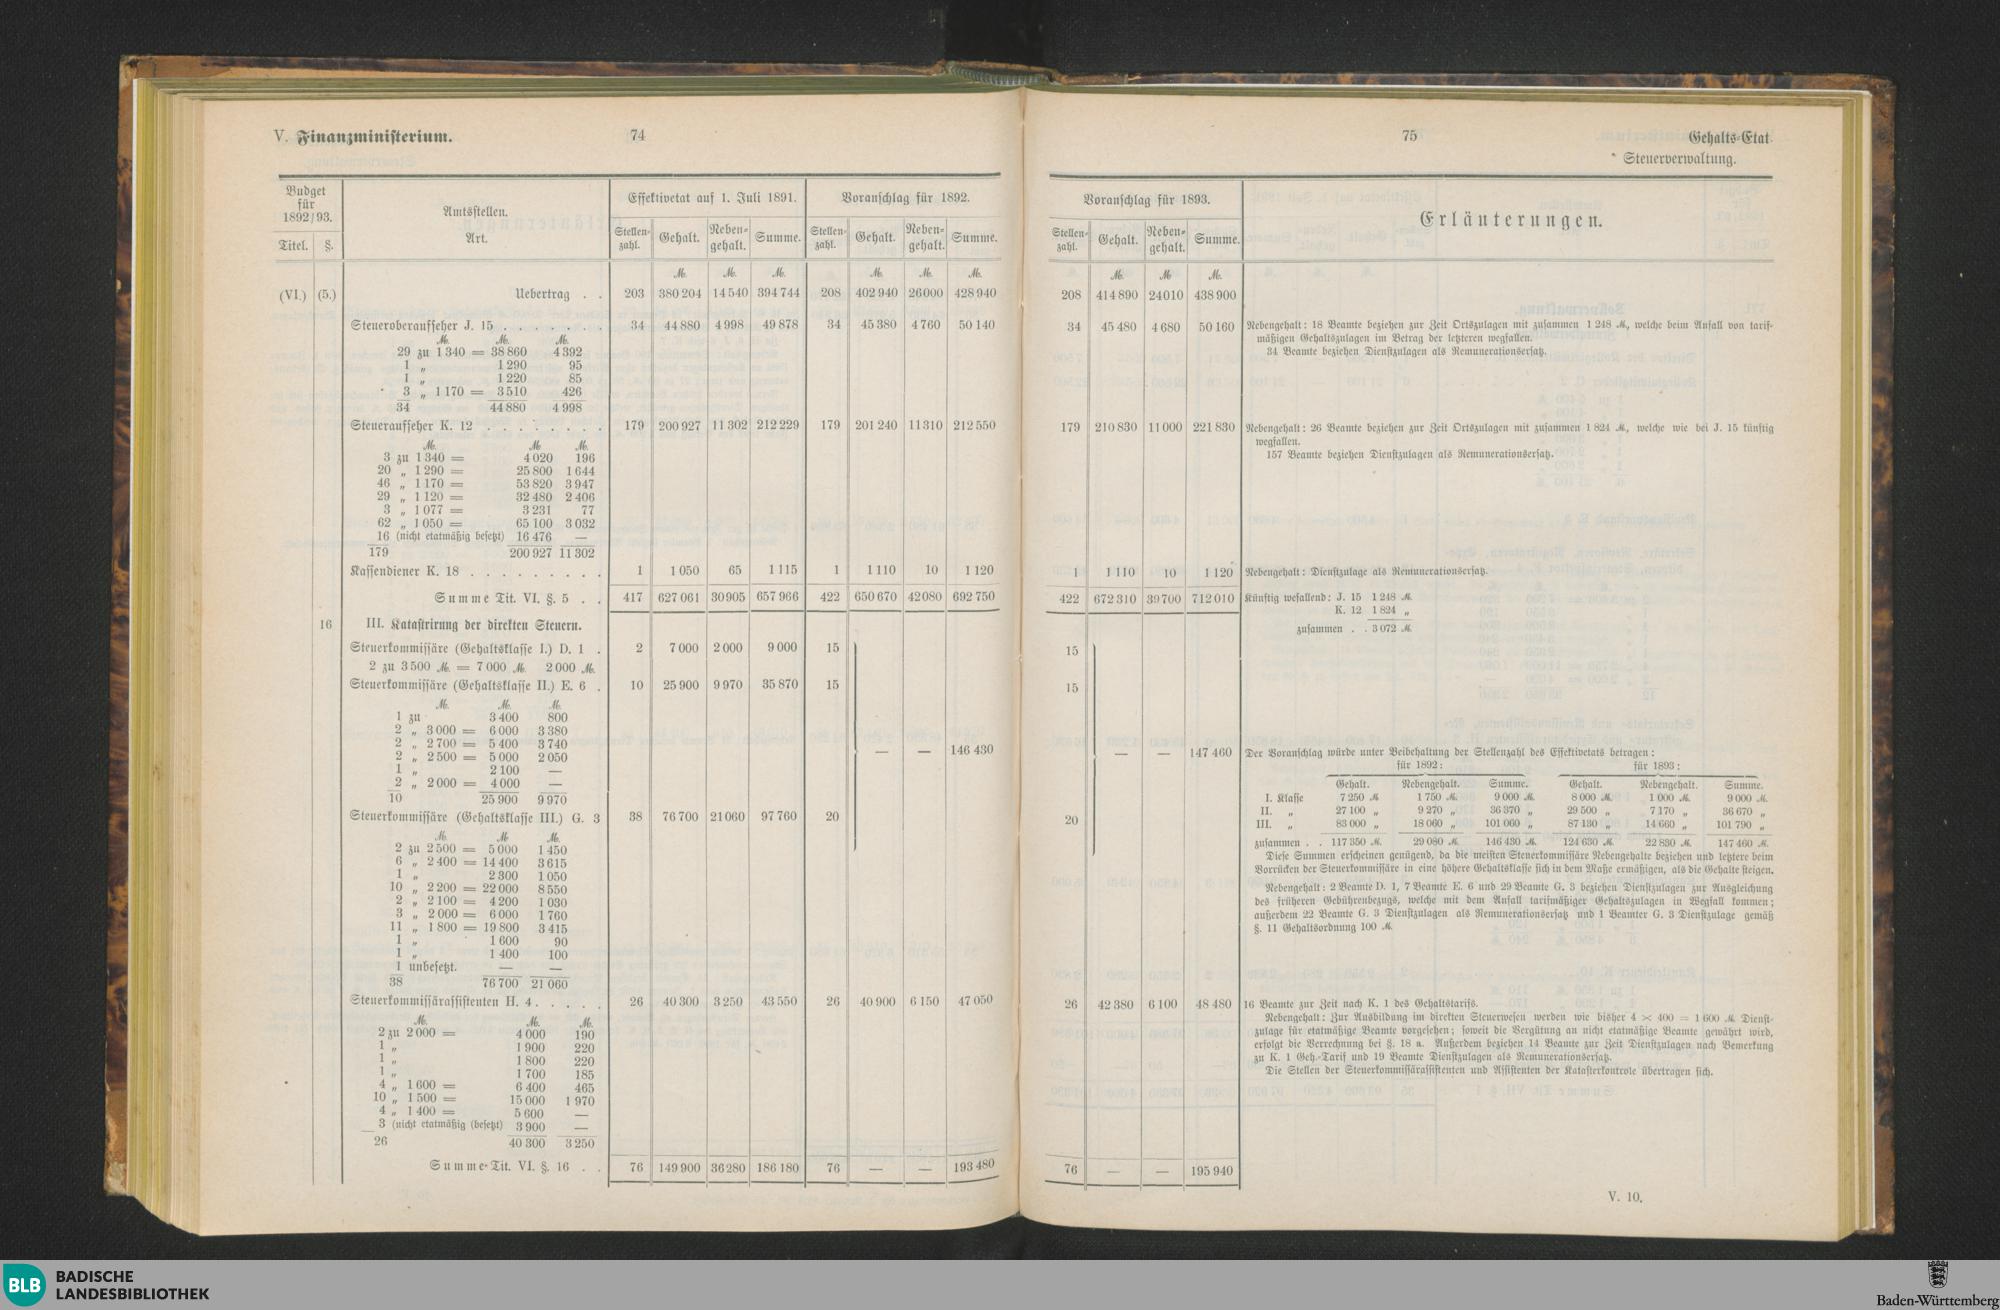 V. Finanzministerium. 74
Budget für 1892/93. Amtsstellen. Art. Effektivetat auf 1. Juli 1891. Voranschlag für 1892.
Titel. §. Stellenzahl. Gehalt. Nebengehalt. Summe. Stellenzahl. Gehalt. Nebengehalt. Summe.
M. M. M. M. M. M.
(VI.) (5.) Uebertrag . . 203 380 204 14 540 394 744 208 402 940 26 000 428 940
Steueroberaufseher J. 15 . . . . . . . 34 44 880 4 998 49 878 34 45 380 4 760 50 140
M. M. M.
29 zu 1 340 = 38 860 4 392
1 „ 1 290 95
1 „ 1 220 85
3 „ 1 170 = 3 510 426
34 44 880 4 998
Steueraufseher K. 12 . . . . . . . . 179 200 927 11 302 212 229 179 201 240 11 310 212 550
M. M. M.
3 zu 1 340 = 4 020 196
20 „ 1 290 = 25 800 1 644
46 „ 1 170 = 53 820 3 947
29 „ 1 120 = 32 480 2 406
3 „ 1 077 = 3 231 77
62 „ 1 050 = 65 100 3 032
16 (nicht etatmäßig besetzt) 16 476 —
179 200 927 11 302
Kassendiener K. 18 . . . . . . . . . 1 1 050 65 1 115 1 1 110 10 1 120
Summe Tit. VI. §. 5 . . 417 627 061 30 905 657 966 422 650 670 42 080 692 750
16 III. Katastrirung der direkten Steuern.
Steuerkommissäre (Gehaltsklasse I.) D. 1 . 2 7 000 2 000 9 000 15
2 zu 3 500 M. = 7 000 M. 2 000 M.
Steuerkommissäre (Gehaltsklasse II.) E. 6 . 10 25 900 9 970 35 870 15
M. M. M.
1 zu 3 400 800
2 „ 3 000 = 6 000 3 380
2 „ 2 700 = 5 400 3 740
2 „ 2 500 = 5 000 2 050
— — 146 430
1 „ 2 100 —
2 „ 2 000 = 4 000 —
10 25 900 9 970
Steuerkommissäre (Gehaltsklasse III.) G. 3 38 76 700 21 060 97 760 20
M. M. M.
2 zu 2 500 = 5 000 1 450
6 „ 2 400 = 14 400 3 615
1 „ 2 300 1 050
10 „ 2 200 = 22 000 8 550
2 „ 2 100 = 4 200 1 030
3 „ 2 000 = 6 000 1 760
11 „ 1 800 = 19 800 3 415
1 „ 1 600 90
1 „ 1 400 100
1 unbesetzt. — —
38 76 700 21 060
Steuerkommissärassistenten H. 4 . . . . . 26 40 300 3 250 43 550 26 40 900 6 150 47 050
M. M. M.
2 zu 2 000 = 4 000 190
1 „ 1 900 220
1 „ 1 800 220
1 „ 1 700 185
4 „ 1 600 = 6 400 465
10 „ 1 500 = 15 000 1 970
4 „ 1 400 = 5 600 —
3 (nicht etatmäßig (besetzt) 3 900 —
26 40 300 3 250
Summe Tit. VI. §. 16 . . 76 149 900 36 280 186 180 76 — — 193 480
75 Gehalts-Etat.
Steuerverwaltung.
Voranschlag für 1893. Erläuterungen.
Stellenzahl. Gehalt. Nebengehalt. Summe.
M. M M.
208 414 890 24 010 438 900
34 45 480 4 680 50 160 Nebengehalt: 18 Beamte beziehen zur Zeit Ortszulagen mit zusammen 1 248 M., welche beim Anfall von tarif-
mäßigen Gehaltszulagen im Betrag der letzteren wegfallen.
34 Beamte beziehen Dienstzulagen als Remunerationsersatz.
179 210 830 11 000 221 830 Nebengehalt: 26 Beamte beziehen zur Zeit Ortszulagen mit zusammen 1 824 M., welche wie bei J. 15 künftig
wegfallen.
157 Beamte beziehen Dienstzulagen als Remunerationsersatz.
1 1 110 10 1 120 Nebengehalt: Dienstzulage als Remunerationsersatz.
422 672 310 39 700 712 010 Künftig wefallend: J. 15 1 248 M.
K. 12 1 824 „
zusammen . . 3 072 M.
15
15
— — 147 460 Der Voranschlag würde unter Beibehaltung der Stellenzahl des Effektivetats betragen:
für 1892: für 1893:
Gehalt. Nebengehalt. Summe. Gehalt. Nebengehalt. Summe.
I. Klasse 7 250 M. 1 750 M. 9 000 M. 8 000 M. 1 000 M. 9 000 M.
II. „ 27 100 „ 9 270 „ 36 370 „ 29 500 „ 7 170 „ 36 670 „
20 III. „ 83 000 „ 18 060 „ 101 060 „ 87 130 „ 14 660 „ 101 790 „
zusammen . . 117 350 M. 29 080 M. 146 430 M. 124 630 M. 22 830 M. 147 460 M.
Diese Summen erscheinen genügend, da die meisten Steuerkommissäre Nebengehalte beziehen und letztere beim
Vorrücken der Steuerkommissäre in eine höhere Gehaltsklasse sich in dem Maße ermäßigen, als die Gehalte steigen.
Nebengehalt: 2 Beamte D. 1, 7 Beamte E. 6 und 29 Beamte G. 3 beziehen Dienstzulagen zur Ausgleichung
des früheren Gebührenbezugs, welche mit dem Anfall tarifmäßiger Gehaltszulagen in Wegfall kommen;
außerdem 22 Beamte G. 3 Dienstzulagen als Remunerationsersatz und 1 Beamter G. 3 Dienstzulage gemäß
§. 11 Gehaltsordnung 100 M.
26 42 380 6 100 48 480 16 Beamte zur Zeit nach K. 1 des Gehaltstarifs.
Nebengehalt: Zur Ausbildung im direkten Steuerwesen werden wie bisher 4 × 400 = 1 600 M. Dienst-
zulage für etatmäßige Beamte vorgesehen; soweit die Vergütung an nicht etatmäßige Beamte gewährt wird,
erfolgt die Verrechnung bei §. 18 a. Außerdem beziehen 14 Beamte zur Zeit Dienstzulagen nach Bemerkung
zu K. 1 Geh.-Tarif und 19 Beamte Dienstzulagen als Remunerationsersatz.
Die Stellen der Steuerkommissärassistenten und Assistenten der Katasterkontrole übertragen sich.
76 — — 195 940
V. 10.
BLB BADISCHE
LANDESBIBLIOTHEK
Baden-Württemberg